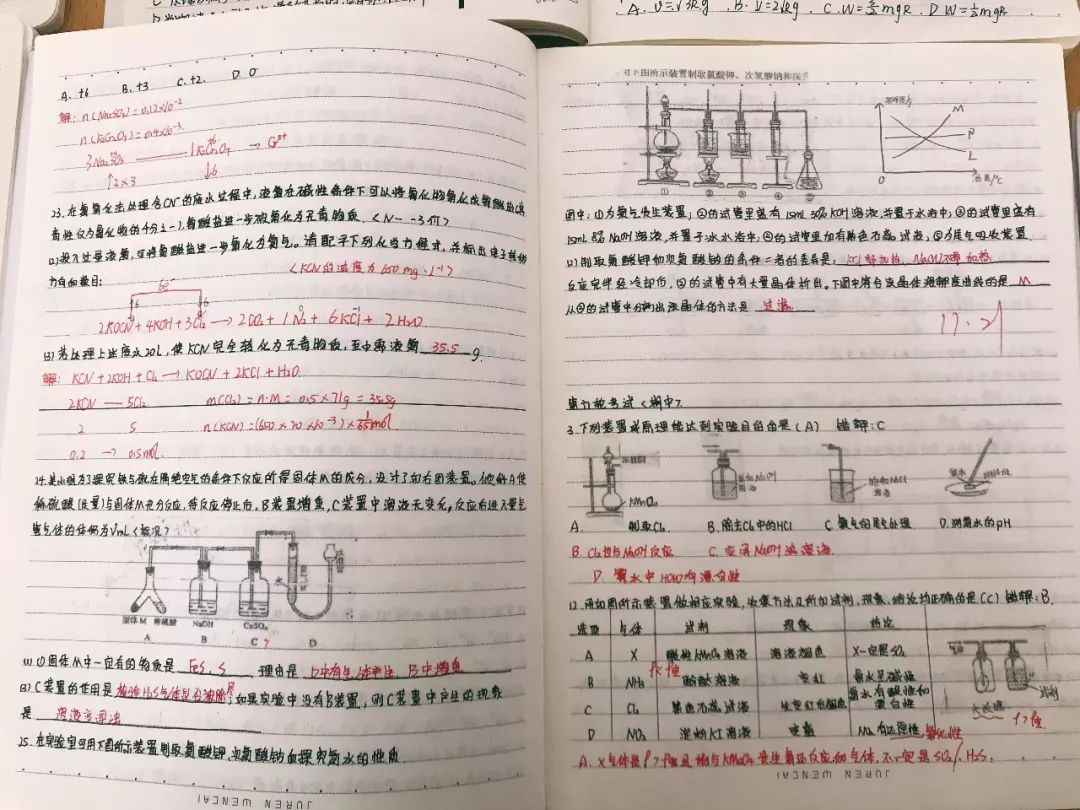 A. V=√3Rg . B. V=2√Rg . C. W=
mgR . D W=½mgR
A. +6 B. +3 C. +2. D 0
解: n(Na₂SO₃)=0.12×10⁻²
n(K₂Cr₂O₇)=0.4×10⁻³
3Na₂SO₃ —— 1K₂Cr₂O₇ → Cr³⁺
↑2×3 ↓6
23. 在氯氧化法处理含CN⁻的废水过程中,液氯在碱性条件下可以将氰化物氧化成氰酸盐(其
毒性仅为氰化物的千分之一),氰酸盐进一步被氧化为无毒物质.
(2)投入过量液氯,可将氰酸盐进一步氧化为氮气。请配平下列化学方程式,并标出电子转移
方向和数目: <KCN的浓度为650mg·L⁻¹>
6e⁻
2KOCN + 4KOH + 3Cl₂ → 2CO₂ + 1N₂ + 6KCl + 2H₂O.
(3)若处理上述废水20L,使KCN完全转化为无毒物质,至少需液氯 35.5 g.
解: KCN + 2KOH + Cl₂ → KOCN + 2KCl + H₂O.
2KCN — 5Cl₂ m(Cl₂)=n·M=0.5×71g=35.5g
2 5 n(KCN)=(650×20×10⁻³)×1/65mol
0.2 → 0.5mol.
24. 某小组为了探究铁与硫在隔绝空气的条件下反应所得固体M的成分,设计了如右图装置。倾斜A使
稀硫酸(足量)与固体M充分反应,待反应停止后,B装置增重,C装置中溶液无变化,反应后进入量气
管气体的体积为VmL(标况)
水
固体M 稀硫酸 NaOH CuSO₄
A B C D
(1) ①固体M中一定有的物质是 FeS, S 理由是 D中有气体产生,B中增重
(3) C装置的作用是 检验H₂S气体是否
;如果实验中没有B装置,则C装置中产生的现象
是
25. 在实验室可用下图所示装置制取氯酸钾、次氯酸钠和探究氯水的性质.
JUREN WENCAI
下图所示装置制取氯酸钾、次氯酸钠和探究
① ② ③ ④ ⑤
溶解度/g
M
P
L
0 温度/℃
图中:①为氯气发生装置;②的试管里盛有15mL 30% KOH溶液,并置于水浴中;③的试管里盛有
15mL 8% NaOH溶液,并置于冰水浴中;④的试管里加有紫色石蕊试液;⑤为尾气吸收装置.
(2)制取氯酸钾和次氯酸钠的条件二者的差异是:
反应完毕经冷却后,②的试管中有大量晶体析出。下图中符合该晶体溶解度曲线的是 M
从②的试管中分离出该晶体的方法是 过滤.
17.21
考试<期中>.
3. 下列装置或原理能达到实验目的的是(A) 错解:C
浓盐酸
KMnO₄
氯水
A. 制取Cl₂ B. 除去Cl₂中的HCl C. 氯气的尾气处理 D. 测氯水的pH
B. Cl₂也与NaOH反应 C. 应用NaOH浓溶液
D. 氯水中HClO有漂白性
12. 用如图所示装置做相应实验,收集方法及所加试剂、现象、结论均正确的是(C) 错解:B.
选项 气体 试剂 现象 结论
A X 酸性KMnO₄溶液 溶液褪色 X一定是SO₂
B NH₃ 酚酞溶液 变红 氨水呈碱性
C Cl₂ 紫色石蕊试液 先变红后褪色 氯水有酸性和漂白性
D NO₂ 淀粉KI溶液 变蓝 NO₂有还原性 氧化性
试剂
A. X气体是
与KMnO₄发生氧化还原反应的气体,不一定是SO₂,H₂S.
JUREN WENCAI